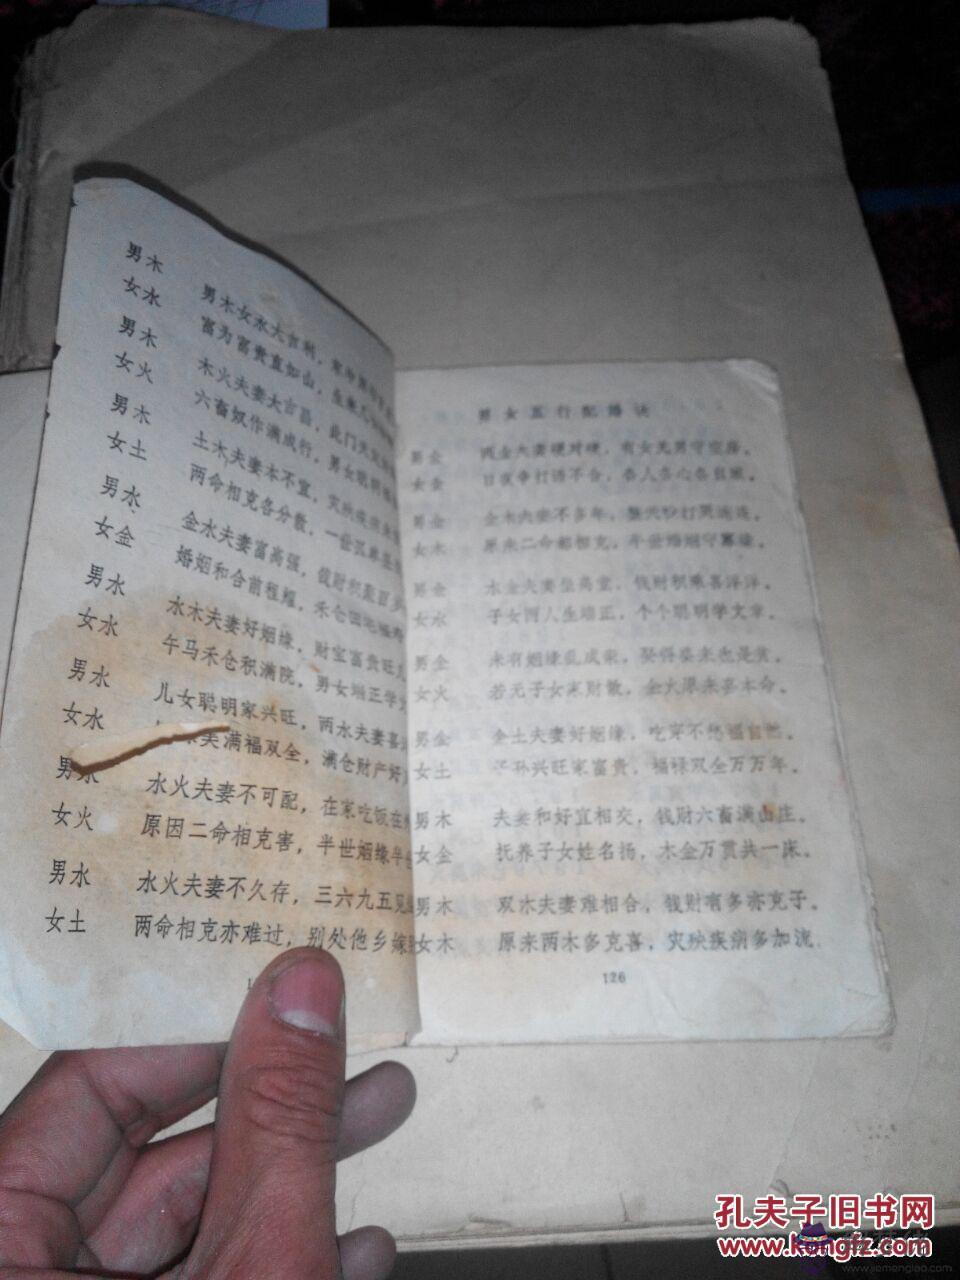 男木
女水 男木女水大吉利,
富为富贵直如山,
男木
女火 木火夫妻大吉昌, 此门天
六畜奴作满成行, 男女聪明
男木
女土 土木夫妻本不宜, 灾殃疾
两命相克各分散, 一世孤
男水
女金 金水夫妻富高强, 钱财积聚百
婚姻和合前程耀, 禾仓田地
男水
女水 水木夫妻好姻缘, 财宝富贵旺
午马禾仓积满院, 男女端正学
男水
女水 儿女聪明家兴旺, 两水夫妻喜
美满福双全, 满仓财产好
男水
女火 水火夫妻不可配, 在家吃饭在
原因二命相克害, 半世姻缘半
男水
女土 水火夫妻不久存, 三六九五见
两命相克亦难过, 别处他乡嫁
男女五行配婚诀
男金 两金夫妻硬对硬, 有女无男守空房。
女金 日夜争打语不合, 各人各心各自
男金 金木夫妻不多年, 整天吵打哭连连。
女木 原来二命都相克, 半世婚姻守寡
男金 水金夫妻坐高堂, 钱财积聚喜洋洋。
女水 子女两人生端正, 个个聪明学文章。
男金 未有姻缘乱成亲, 娶得妻来也是贫。
女火 若无子女家财散, 金火原来害本命。
男金 金土夫妻好姻缘, 吃穿不愁福自然。
女土 子孙兴旺家富贵, 福禄双全万万年。
男木 夫妻和好宜相交, 钱财六畜满山庄。
女金 抚养子女姓名扬, 木金万贯共一床。
男木 双水夫妻难相合, 钱财有多亦克子。
女木 原来两木多克喜, 灾殃疾病多加
126
孔夫子旧书网
www.kongfz.com
www.jiemengleo.com